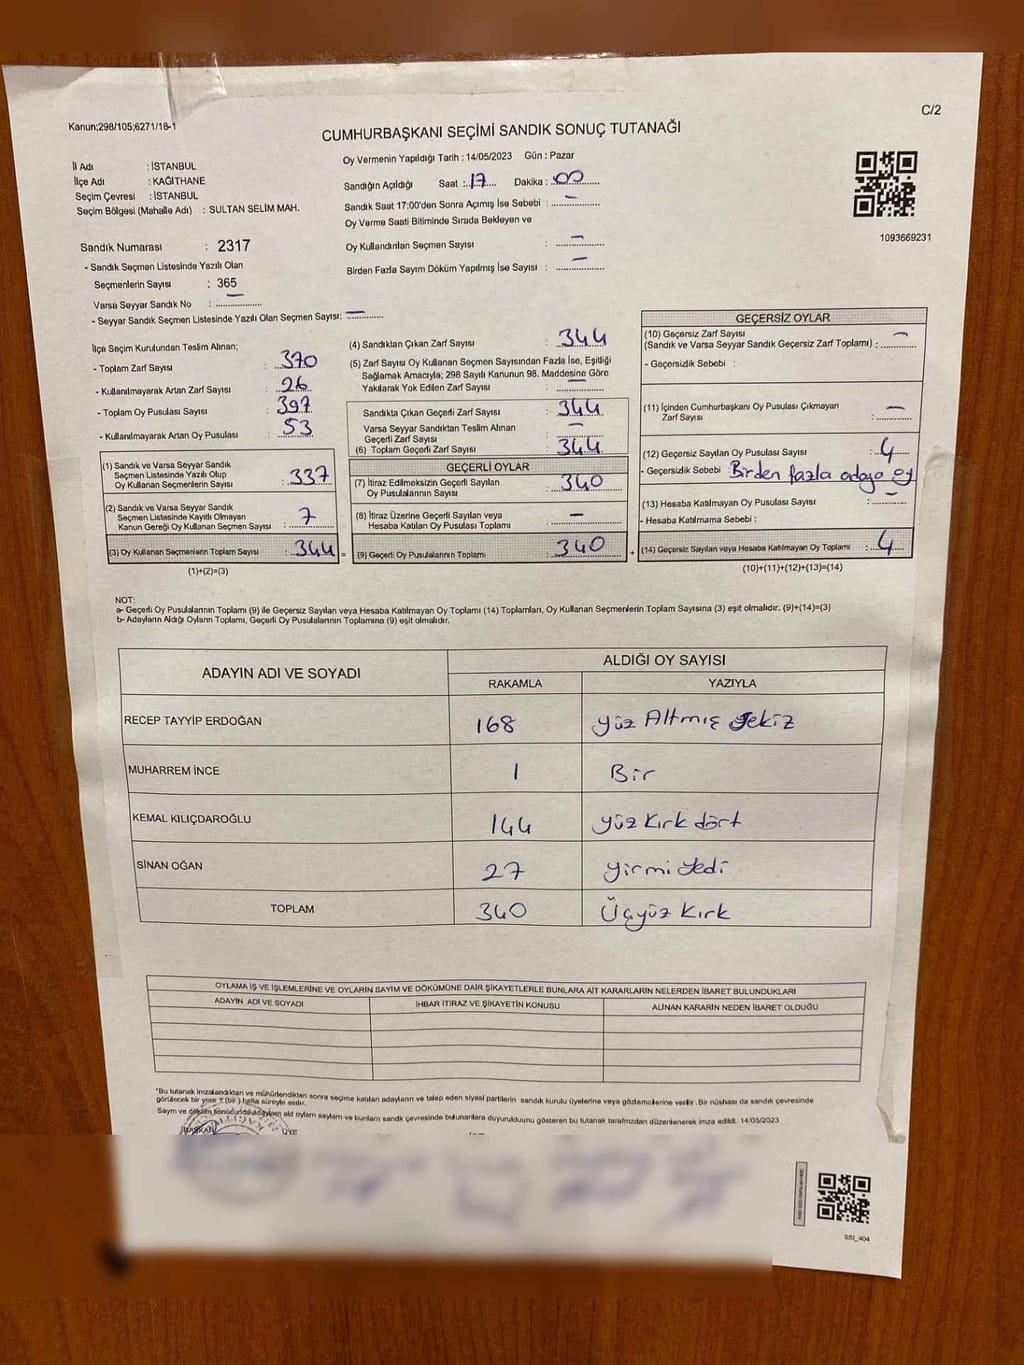 Kanun;298/105;6271/16-1
C/2
CUMHURBAŞKANI SEÇİMİ SANDIK SONUÇ TUTANAĞI
İl Adı : İSTANBUL
İlçe Adı : KAĞITHANE
Seçim Çevresi : İSTANBUL
Seçim Bölgesi (Mahalle Adı) : SULTAN SELİM MAH.
Oy Vermenin Yapıldığı Tarih : 14/05/2023 Gün : Pazar
Sandığın Açıldığı Saat : 17 Dakika : 00
Sandık Saat 17:00'den Sonra Açımış İse Sebebi : –
Oy Verme Saati Bitiminde Sırada Bekleyen ve
Oy Kullandırılan Seçmen Sayısı : –
Birden Fazla Sayım Döküm Yapılmış İse Sayısı : –
1093669231
Sandık Numarası : 2317
- Sandık Seçmen Listesinde Yazılı Olan
Seçmenlerin Sayısı : 365
Varsa Seyyar Sandık No : –
- Seyyar Sandık Seçmen Listesinde Yazılı Olan Seçmen Sayısı: –
İlçe Seçim Kurulundan Teslim Alınan;
- Toplam Zarf Sayısı : 370
- Kullanılmayarak Artan Zarf Sayısı : 26
- Toplam Oy Pusulası Sayısı : 397
- Kullanılmayarak Artan Oy Pusulası : 53
(1) Sandık ve Varsa Seyyar Sandık
Seçmen Listesinde Yazılı Olup
Oy Kullanan Seçmenlerin Sayısı : 337
(2) Sandık ve Varsa Seyyar Sandık
Seçmen Listesinde Kayıtlı Olmayan
Kanun Gereği Oy Kullanan Seçmen Sayısı : 7
(3) Oy Kullanan Seçmenlerin Toplam Sayısı : 344 =
(1)+(2)=(3)
(4) Sandıktan Çıkan Zarf Sayısı : 344
(5) Zarf Sayısı Oy Kullanan Seçmen Sayısından Fazla İse, Eşitliği
Sağlamak Amacıyla; 298 Sayılı Kanunun 98. Maddesine Göre
Yakılarak Yok Edilen Zarf Sayısı : –
Sandıkta Çıkan Geçerli Zarf Sayısı : 344
Varsa Seyyar Sandıktan Teslim Alınan
Geçerli Zarf Sayısı : –
(6) Toplam Geçerli Zarf Sayısı : 344
GEÇERLİ OYLAR
(7) İtiraz Edilmeksizin Geçerli Sayılan
Oy Pusulalarının Sayısı : 340
(8) İtiraz Üzerine Geçerli Sayılan veya
Hesaba Katılan Oy Pusulası Toplamı : –
(9) Geçerli Oy Pusulalarının Toplamı : 340 +
GEÇERSİZ OYLAR
(10) Geçersiz Zarf Sayısı
(Sandık ve Varsa Seyyar Sandık Geçersiz Zarf Toplamı) : –
- Geçersizlik Sebebi :
(11) İçinden Cumhurbaşkanı Oy Pusulası Çıkmayan
Zarf Sayısı : –
(12) Geçersiz Sayılan Oy Pusulası Sayısı : 4
- Geçersizlik Sebebi Birden fazla adaya oy
(13) Hesaba Katılmayan Oy Pusulası Sayısı : –
- Hesaba Katılmama Sebebi :
(14) Geçersiz Sayılan veya Hesaba Katılmayan Oy Toplamı : 4
(10)+(11)+(12)+(13)=(14)
NOT:
a- Geçerli Oy Pusulalarının Toplamı (9) ile Geçersiz Sayılan veya Hesaba Katılmayan Oy Toplamı (14) Toplamları, Oy Kullanan Seçmenlerin Toplam Sayısına (3) eşit olmalıdır. (9)+(14)=(3)
b- Adayların Aldığı Oyların Toplamı, Geçerli Oy Pusulalarının Toplamına (9) eşit olmalıdır.
ADAYIN ADI VE SOYADI
ALDIĞI OY SAYISI
RAKAMLA YAZIYLA
RECEP TAYYİP ERDOĞAN 168 Yüz Altmış Sekiz
MUHARREM İNCE 1 Bir
KEMAL KILIÇDAROĞLU 144 Yüz Kırk dört
SİNAN OĞAN 27 Yirmi Yedi
TOPLAM 340 Üçyüz Kırk
OYLAMA İŞ VE İŞLEMLERİNE VE OYLARIN SAYIM VE DÖKÜMÜNE DAİR ŞİKAYETLERLE BUNLARA AİT KARARLARIN NELERDEN İBARET BULUNDUKLARI
ADAYIN ADI VE SOYADI İHBAR İTİRAZ VE ŞİKAYETİN KONUSU ALINAN KARARIN NEDEN İBARET OLDUĞU
*Bu tutanak imzalandıktan ve mühürlendikten sonra seçime katılan adayların ve talep eden siyasi partilerin sandık kurulu üyelerine veya gözlemcilerine verilir. Bir nüshası da sandık çevresinde
görülecek bir yere 1 (bir) hafta süreyle asılır.
BAŞKAN ÜYE
SSI_404